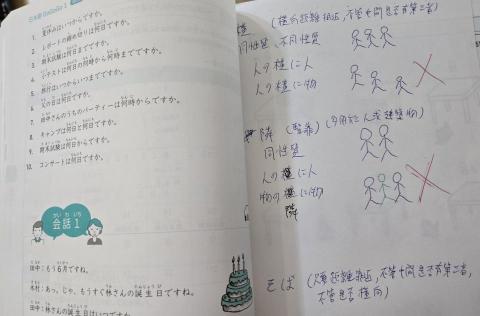 日本語GoGoGo 1
1. 夏休みはいつからですか。
2. レポートの締め切りは何日ですか。
3. 期末試験は何日までですか。
4. 小テストは何日の何時から何時までですか。
5. 旅行はいつからいつまでですか。
6. 父の日は何日ですか。
7. 田中さんのうちのパーティーは何時からですか。
8. キャンプは何日と何日ですか。
9. 期末試験は何日からですか。
10. コンサートは何日ですか。
かいわいち
会話1
田中：もう6月ですね。
木村：あっ、じゃ、もうすぐ林さんの誕生日ですね。
田中：林さんの誕生日はいつですか。
横 (横向距離接近,不管中間是否有第三者)
同性質、不同性質
人の横に人
人の横に物
隣 (緊鄰) (多用於人或建築物)
同性質
人の横に人
物の横に物
隣
そば (只要距離接近,不管中間是否有第三者,
不管是否橫向)